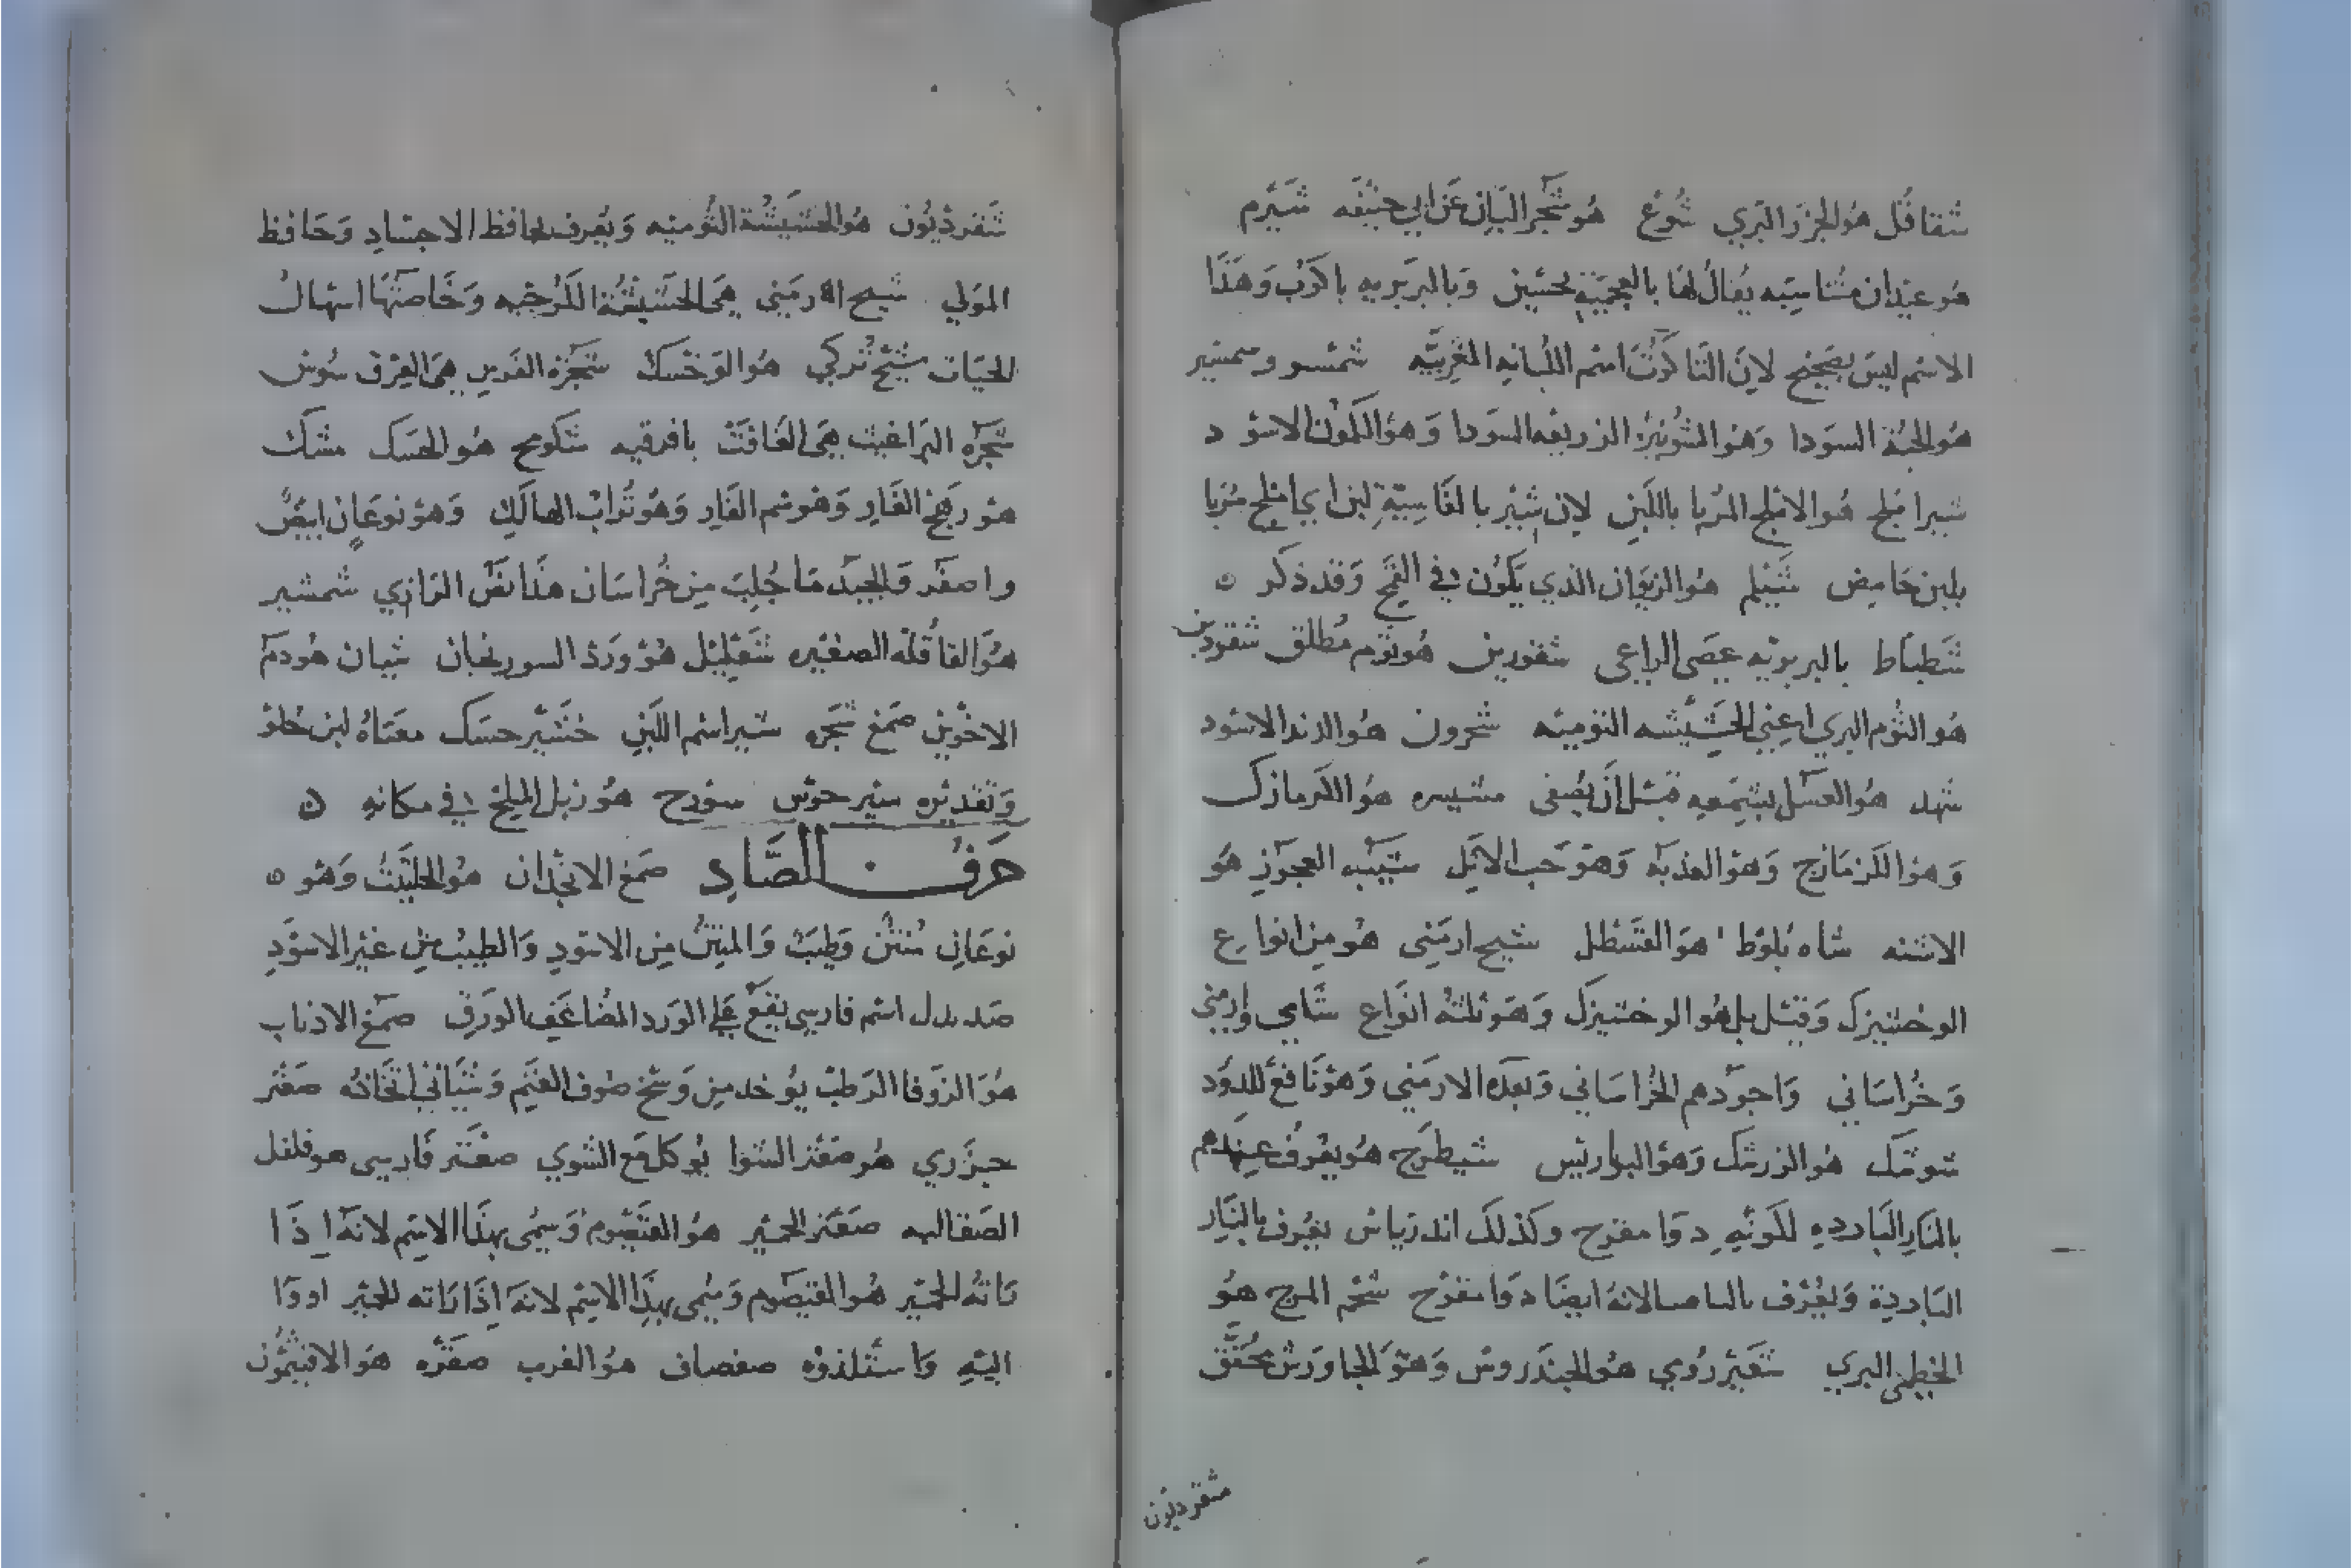 شقاقل هو الجزر البري شوع هو شجر البان عن ابي حنيفه شبرم
هو عيدان مشتاسيه يقال لها بالعجمية لحشين وبالبربريه باكرب وهذا
الاسم ليس بصحيح لان التاكوت اسم اللبانه الغربيه شمسو وسمسير
هو الحبة السودا وهو الشونيز الزريعه السودا وهو الكمون الاسود
شيراملج هو الاملج المربا باللبن لان شير بالفاسية لبن اي املج مربا
بلبن حامض شيلم هو الزوان الذي يكون في القمح وقد ذكر
شطباط بالبربريه عصى الراعي شقورين هو ثوم مطلق شقوديون
هو الثوم البري اعني الحشيشه الثوميه شحرون هو الدند الاسود
شهد هو العسل بشمعه قبل ان يصفى هو الكرمازك
وهو الكزمازج وهو العذبه وهو حب الاثل شيبه العجوز هو
الاشنه شاه بلوط هو القسطل شيح ارمني هو من انواع
الوخشيزك وقيل بل هو الوخشيزك وهو ثلثه انواع شامي وارمني
وخراساني واجودهم الخراساني وبعده الارمني وهو نافع للدود
شوشك هو الزرشك وهو البرباريس شيطرج هو يعرف عندهم
بالنار البارده لكونه دوا مقرح وكذلك اندرياس يعرف بالنار
الباردة ويعرف لانه ايضا دوا مقرح شحم المرج هو
الخطمى البري شعير رومي هو الجندروس وهو الجاورش محقق
شقرديون
شقرديون هو الحشيشة الثوميه ويعرف بحافظ الاجساد وحافظ
الموتي شيح ارمني هي الحشيشة الكرخيه وخاصتها اسهال
الحيات شيح تركي هو الوخشك شجرة القدس هي العرق سوس
شجره البراغيث هي الغافت بافرقيه شكوهج هو الحسك مشك
هو رهج الفار وهو سم الفار وهو تراب الهالك وهو نوعان ابيض
واصفر والجيد ما جلب من خراسان هذا نص الرازي شمشير
هو القاقله الصغيره شنعليل هو ورد السورنجان شيان هو دم
الاخوين صمغ شجره شير اسم اللبن خشير حسك معناه لبن حلو
وتقديره شير حوس سورح هو زبل الملح في مكانه
حرف الصاد صمغ الانجدان هو الحلتيت وهو
نوعان منتن وطيب والمنتن من الاسود والطيب من غير الاسود
صدبدل اسم فارسي يقع على الورد المضاعف الورق صمغ الاذناب
هو الزوفا الرطب يوخد من وسخ صوف الغنم وسياتي اتخاذه صعتر
حيزري هو صعتر الشوا يوكل مع الشوي صعتر فارسي هو فلفل
الصقالبه صعتر الحمير هو القيصوم وسمى بهذا الاسم لانه اذا
راته الحمير هو القيصوم وسمى بهذا الاسم لانه اذا راته الحمير اووا
اليه واستلذوه صفصاف هو الغرب صعتره هو الافتيمون